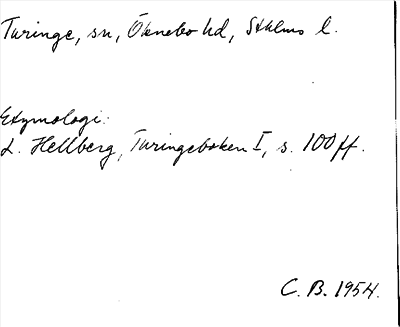 Turinge, sn, Öknebo hd, Sthlms l.
Etymologi:
L. Hellberg, Turingeboken I, s. 100 ff.
C. B. 1954.